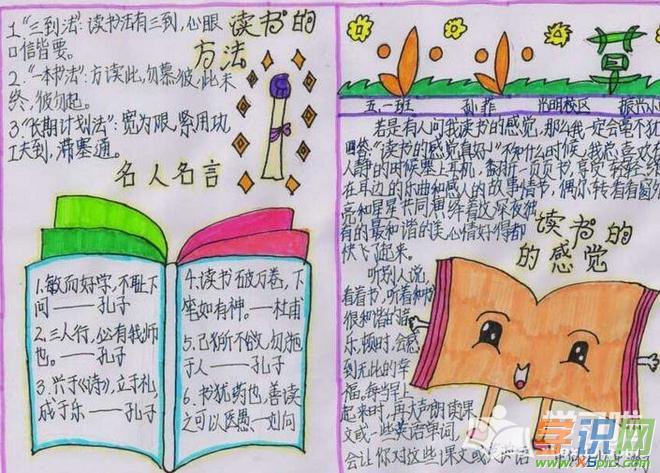 1."三到法":读书法有三到,心眼
口信皆要。
2."一本书法":方读此,勿慕彼,此未
终,彼勿起。
3."长期计划法":宽为限,紧用功,
工夫到,滞塞通。
读书的
方法
名人名言
1.敏而好学,不耻下
问——孔子
2.三人行,必有我师
也。——孔子
3.兴于《诗》,立于礼,
成于乐——孔子
4.读书破万卷,下
笔如有神。——杜甫
5.己所不欲,勿施
于人——孔子
6.书犹药也,善读
之可以医愚—刘向
草
五.一班
孙菲
光明校区
振兴小
若是有人问我读书的感觉,那么我一定会毫不犹
"读书的感觉真好!"不知什么时候,我总喜欢在
人静的时候塞上耳机,
在耳边的乐曲和感人的故事情节,偶尔转着看窗外
亮和星星共同
有的最和谐的美心情好得都
快飞起来。
读书的
的感觉
听别人说,
看着书,听着和
很和谐的音
乐,顿时,会感
到无比的幸
福,每当早上
起来时,再大声朗读课
文或一些英语单词
会让你对这些课文或英语
学识网
www.xspic.com